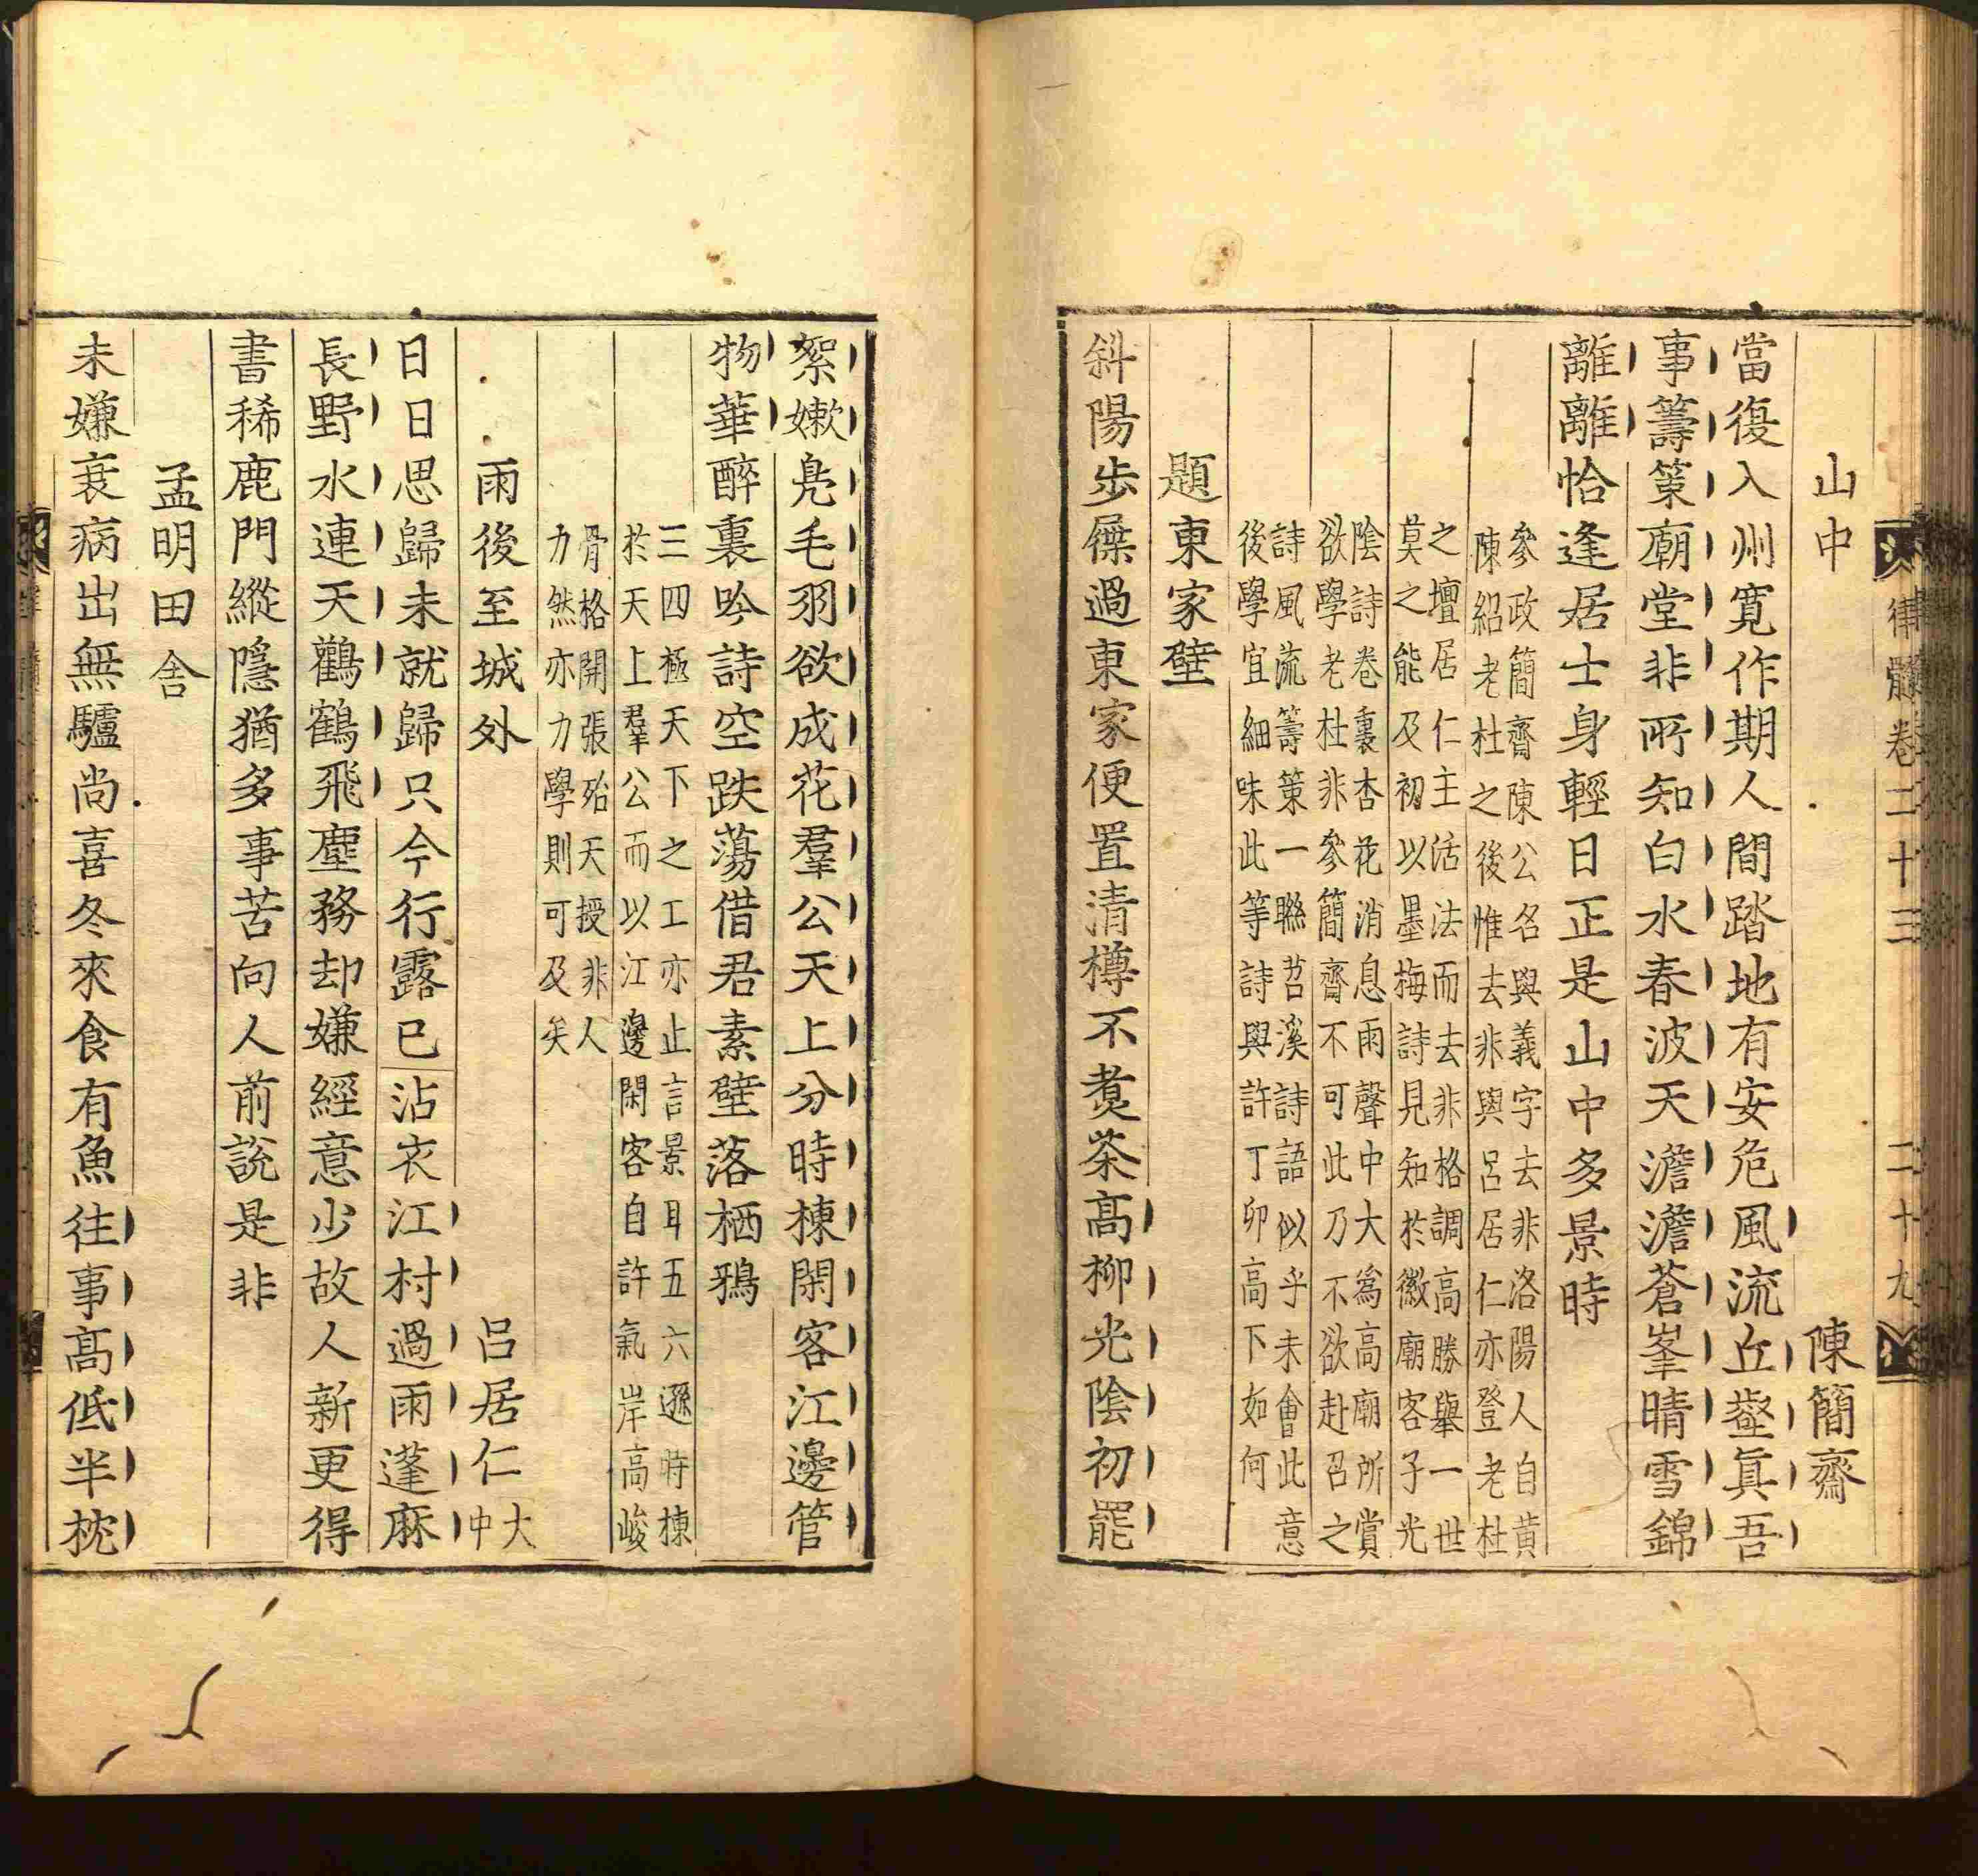 律髓卷二十三 二十九
山中 陳簡齋
當復入州寛作期人間踏地有安危風流丘壑眞吾
事籌策廟堂非所知白水春波天澹澹蒼峯晴雪錦
離離恰逢居士身輕日正是山中多景時
參政簡齋陳公名與義字去非洛陽人自黄
陳紹老杜之後惟去非與呂居仁亦登老杜
之壇居仁主活法而去非格調高勝舉一世
莫之能及初以墨梅詩見知於徽廟客子光
陰詩卷裏杏花消息雨聲中大為高廟所賞
欲學老杜非參簡齋不可此乃不欲赴召之
詩風流籌策一聯苕溪詩語似乎未會此意
後學宜細味此等詩與許丁卯高下如何
題東家壁
斜陽步屧過東家便置清樽不煑茶高柳光陰初罷
絮嫩鳧毛羽欲成花羣公天上分時棟閑客江邊管
物華醉裏吟詩空跌蕩借君素壁落栖鴉
三四極天下之工亦止言景耳五六遜時棟
於天上羣公而以江邊閑客自許氣岸高峻
骨格開張殆天授非人
力然亦力學則可及矣
雨後至城外 呂居仁大中
日日思歸未就歸只今行露已沾衣江村過雨蓬麻
長野水連天鸛鶴飛塵務却嫌經意少故人新更得
書稀鹿門縱隱猶多事苦向人前說是非
孟明田舍
未嫌衰病出無驢尚喜冬來食有魚往事髙低半枕